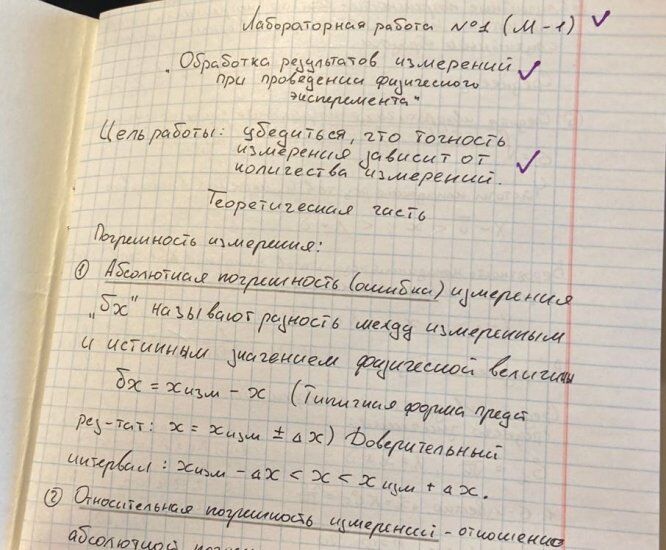 Лабораторная работа №1 (М-1)
"Обработка результатов измерений
при проведении физического
эксперемента"
Цель работы: убедиться, что точность
измерения зависит от
количества измерений.
Теоретическая часть
Погрешность измерения:
① Абсолютная погрешность (ошибка) измерения
„δx" называют разность между измеренным
и истинным значением физической величины
δx = xизм - x (Типичная форма предст
рез-тат: x = xизм ± Δx) Доверительный
интервал: xизм - Δx < x < xизм + Δx.
② Относительная погрешность измерений - отношение
абсолютной